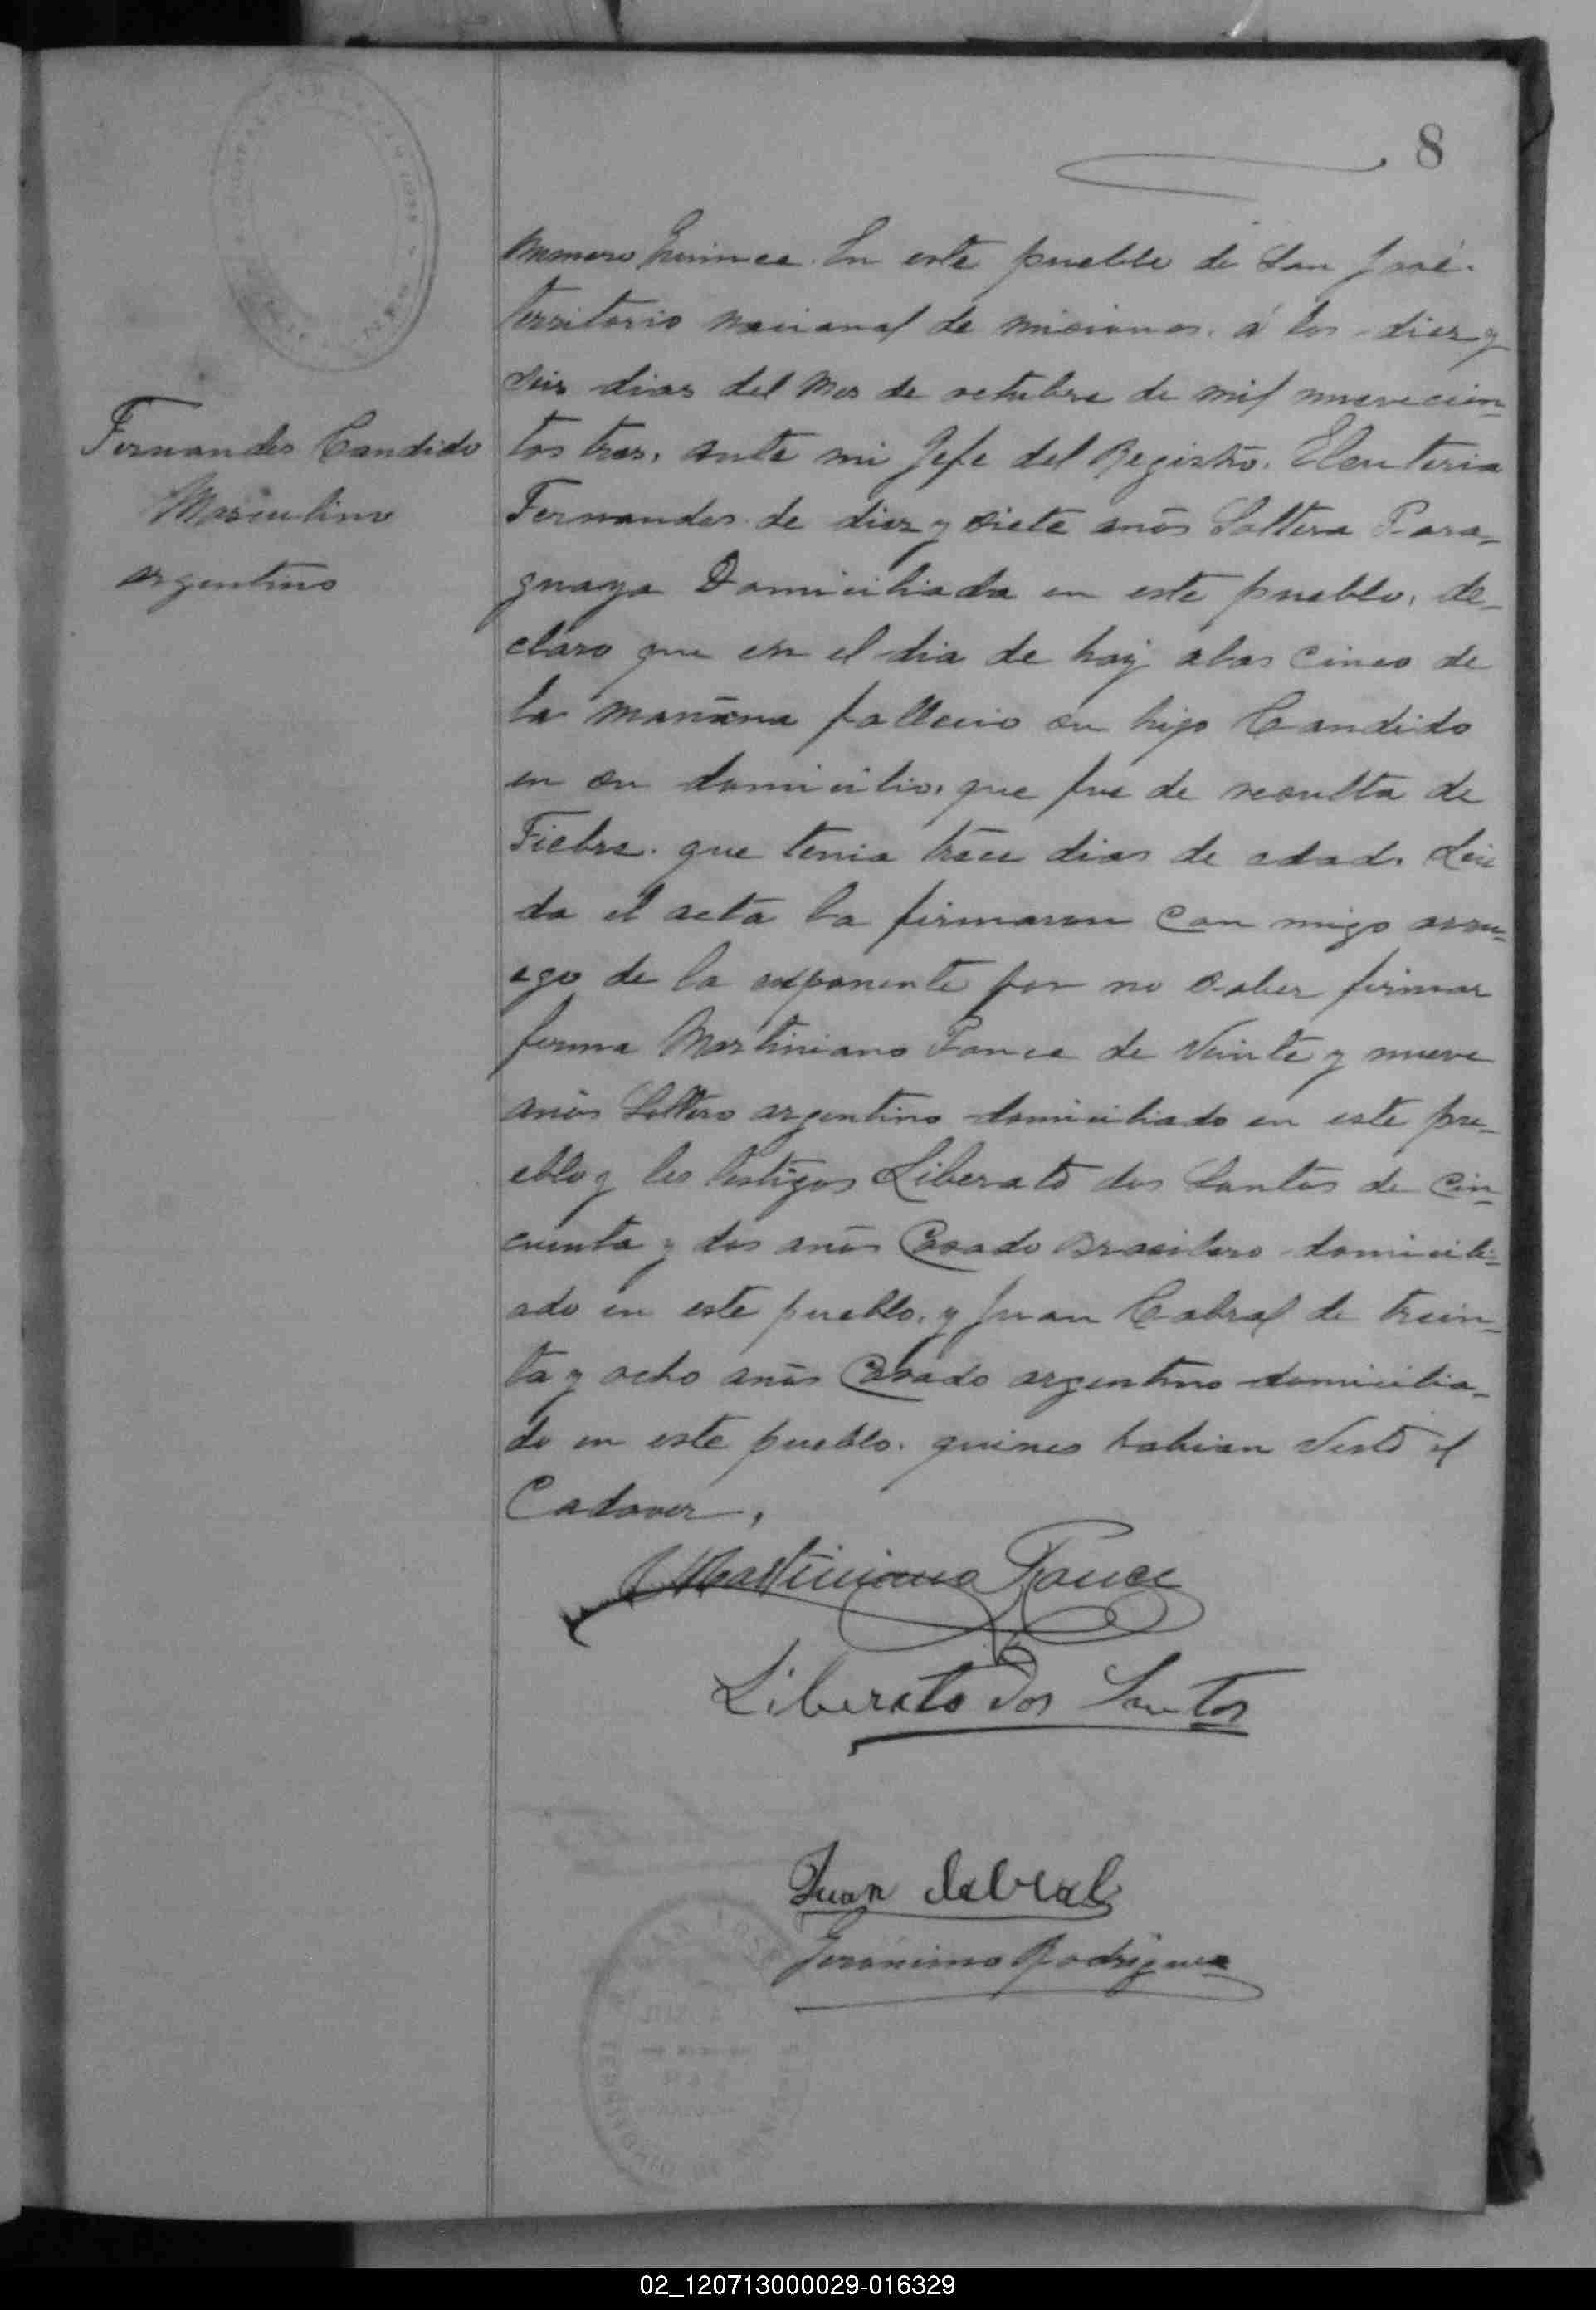 8
Numero Quince. En este pueblo de San José.
territorio nacional de misiones. á los diez y
seis dias del mes de octubre de mil novecien-
tos tres, ante mi Jefe del Registro. Eleuteria
Fernandes de diez y siete anõs Soltera Para-
guaya Domiciliada en este pueblo, de-
claro que en el dia de hoy alas cinco de
la manãna fallecio su hijo Candido
en su domicilio, que fue de resulta de
Fiebre. que tenia trece dias de edad. Lei
da el acta la firmaron con migo arru-
ego de la exponente por no saber firmar
firma Martiniano Ponce de Veinte y nueve
anõs Soltero argentino domiciliado en este pu-
eblo y los testigos Liberato dos Santos de Cin-
cuenta y dos anõs Casado Brasilero domicili-
ado en este pueblo, y Juan Cabral de trein-
ta y ocho anõs Casado argentino domicilia-
do en este pueblo. quines habian Visto el
Cadaver,
Fernandes Candido
Masculino
argentino
Martiniano Ponce
Liberato Dos Santos
Juan Cabral
Geronimo Rodriguez
02_120713000029-016329